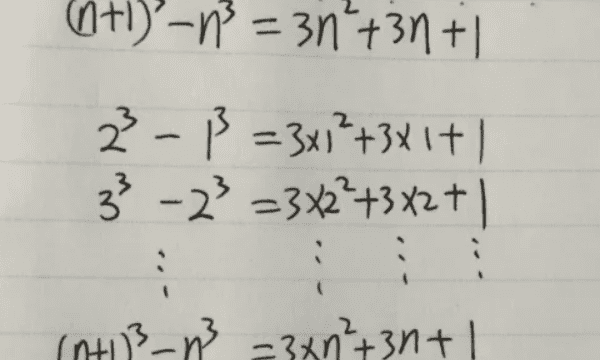 (n+1)³-n³ = 3n²+3n+1
2³ - 1³ = 3×1²+3×1+1
3³ - 2³ = 3×2²+3×2+1
⋮ ⋮ ⋮ ⋮
(n+1)³-n³ = 3×n²+3n+1